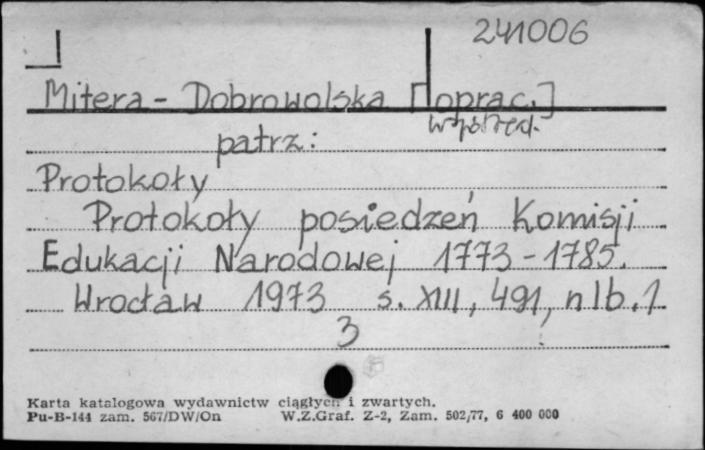 241006
Mitera - Dobrowolska [oprac.]
współred.
patrz:
Protokoły
Protokoły posiedzeń Komisji
Edukacji Narodowej 1773-1785.
Wrocław 1973 s. XIII, 491, nlb. 1
3
Karta katalogowa wydawnictw ciągłych i zwartych.
Pu-B-144 zam. 567/DW/On W.Z.Graf. Z-2, Zam. 502/77, 6 400 000